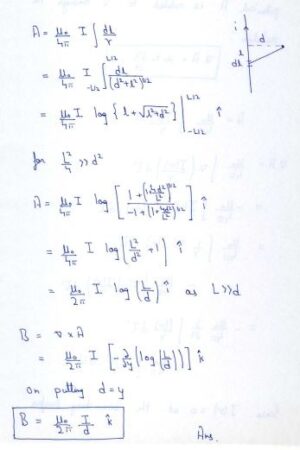 A = μ₀/4π I ∫ dl/r
= μ₀/4π I ∫_{-L/2}^{L/2} dl/(d²+l²)^{1/2}
= μ₀/4π I log { l + √(l²+d²) } |_{-L/2}^{L/2} î
for L²/4 >> d²
A = μ₀/4π I log [ (1 + (1+4d²/L²)^{1/2}) / (-1 + (1+4d²/L²)^{1/2}) ] î
= μ₀/4π I log ( L²/d² + 1 ) î
= μ₀/2π I log ( L/d ) î as L>>d
B = ∇ × A
= μ₀/2π I [ -∂/∂y ( log ( L/d ) ) ] k̂
on putting d = y
B = μ₀/2π I/d k̂
Ans.
i
d
l
dl